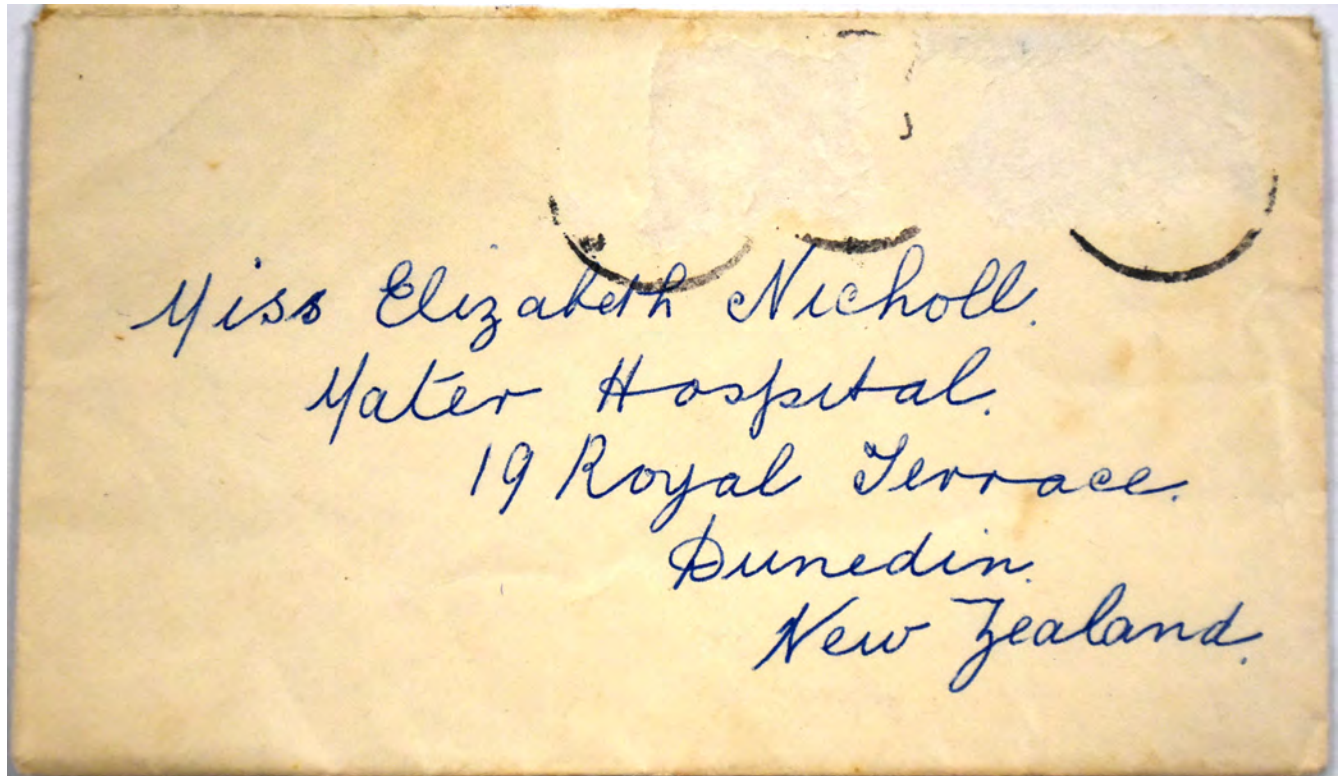 Miss Elizabeth Nicholl.
Mater Hospital.
19 Royal Terrace.
Dunedin.
New Zealand.